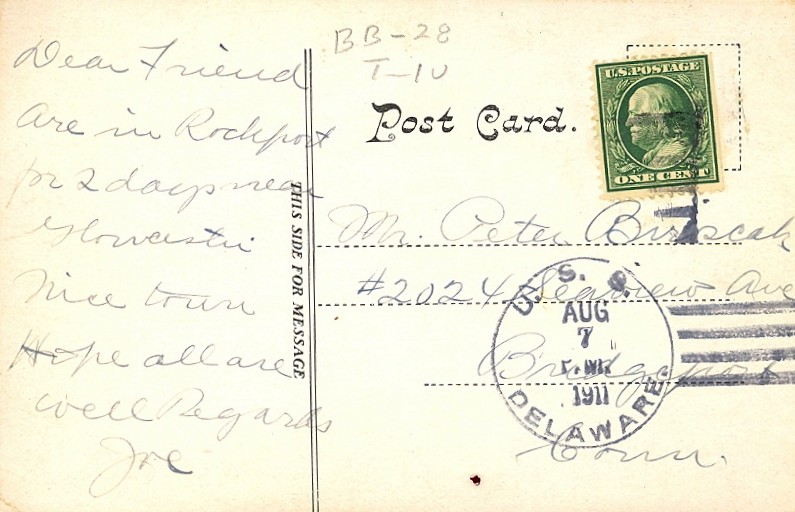 BB-28
T-10
Post Card.
U.S. POSTAGE
ONE CENT
THIS SIDE FOR MESSAGE
Dear Friend
Are in Rockport
for 2 days near
Glowcester
Nice town
Hope all are
well Regards
Joe
Mr. Peter
#2024 Seaview Ave
Bridgeport
Conn.
U. S. S.
AUG
7
1911
DELAWARE.